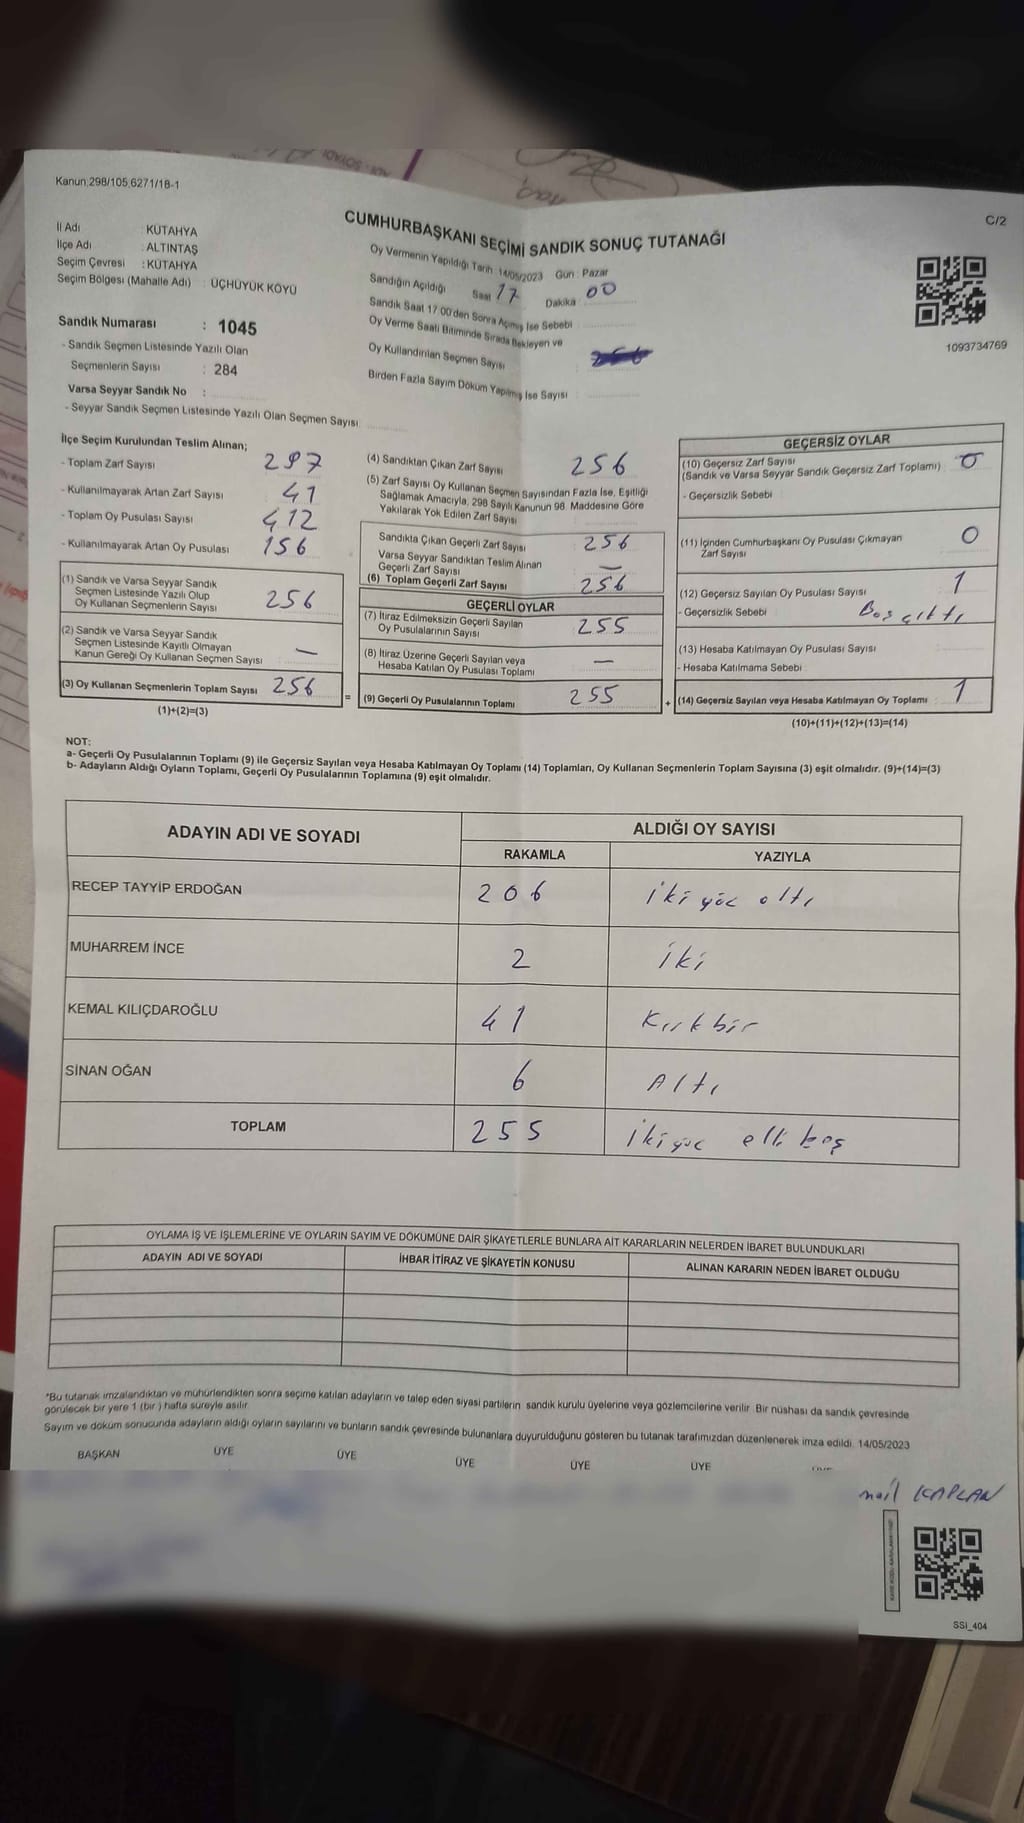 Kanun:298/105,6271/18-1
C/2
CUMHURBAŞKANI SEÇİMİ SANDIK SONUÇ TUTANAĞI
İl Adı : KÜTAHYA
İlçe Adı : ALTINTAŞ
Seçim Çevresi : KÜTAHYA
Seçim Bölgesi (Mahalle Adı) : ÜÇHÜYÜK KÖYÜ
Sandık Numarası : 1045
- Sandık Seçmen Listesinde Yazılı Olan
Seçmenlerin Sayısı : 284
Varsa Seyyar Sandık No :
- Seyyar Sandık Seçmen Listesinde Yazılı Olan Seçmen Sayısı
Oy Vermenin Yapıldığı Tarih 14/05/2023 Gün : Pazar
Sandığın Açıldığı Saat 17 Dakika 00
Sandık Saat 17:00'den Sonra Açılmış İse Sebebi
Oy Verme Saati Bitiminde Sırada Bekleyen ve
Oy Kullandırılan Seçmen Sayısı
Birden Fazla Sayım Döküm Yapılmış İse Sayısı
1093734769
İlçe Seçim Kurulundan Teslim Alınan;
- Toplam Zarf Sayısı 297
- Kullanılmayarak Artan Zarf Sayısı 41
- Toplam Oy Pusulası Sayısı 412
- Kullanılmayarak Artan Oy Pusulası 156
(1) Sandık ve Varsa Seyyar Sandık
Seçmen Listesinde Yazılı Olup
Oy Kullanan Seçmenlerin Sayısı 256
(2) Sandık ve Varsa Seyyar Sandık
Seçmen Listesinde Kayıtlı Olmayan
Kanun Gereği Oy Kullanan Seçmen Sayısı —
(3) Oy Kullanan Seçmenlerin Toplam Sayısı 256
(1)+(2)=(3)
=
(4) Sandıktan Çıkan Zarf Sayısı 256
(5) Zarf Sayısı Oy Kullanan Seçmen Sayısından Fazla İse, Eşitliği
Sağlamak Amacıyla, 298 Sayılı Kanunun 98. Maddesine Göre
Yakılarak Yok Edilen Zarf Sayısı
Sandıkta Çıkan Geçerli Zarf Sayısı 256
Varsa Seyyar Sandıktan Teslim Alınan
Geçerli Zarf Sayısı —
(6) Toplam Geçerli Zarf Sayısı 256
GEÇERLİ OYLAR
(7) İtiraz Edilmeksizin Geçerli Sayılan
Oy Pusulalarının Sayısı 255
(8) İtiraz Üzerine Geçerli Sayılan veya
Hesaba Katılan Oy Pusulası Toplamı —
(9) Geçerli Oy Pusulalarının Toplamı 255
+
GEÇERSİZ OYLAR
(10) Geçersiz Zarf Sayısı
(Sandık ve Varsa Seyyar Sandık Geçersiz Zarf Toplamı) 0
- Geçersizlik Sebebi
(11) İçinden Cumhurbaşkanı Oy Pusulası Çıkmayan
Zarf Sayısı 0
(12) Geçersiz Sayılan Oy Pusulası Sayısı 1
- Geçersizlik Sebebi Boş çıktı
(13) Hesaba Katılmayan Oy Pusulası Sayısı
- Hesaba Katılmama Sebebi
(14) Geçersiz Sayılan veya Hesaba Katılmayan Oy Toplamı 1
(10)+(11)+(12)+(13)=(14)
NOT:
a- Geçerli Oy Pusulalarının Toplamı (9) ile Geçersiz Sayılan veya Hesaba Katılmayan Oy Toplamı (14) Toplamları, Oy Kullanan Seçmenlerin Toplam Sayısına (3) eşit olmalıdır. (9)+(14)=(3)
b- Adayların Aldığı Oyların Toplamı, Geçerli Oy Pusulalarının Toplamına (9) eşit olmalıdır.
ADAYIN ADI VE SOYADI ALDIĞI OY SAYISI
RAKAMLA YAZIYLA
RECEP TAYYİP ERDOĞAN 206 iki yüz altı
MUHARREM İNCE 2 iki
KEMAL KILIÇDAROĞLU 41 Kırkbir
SİNAN OĞAN 6 Altı
TOPLAM 255 ikiyüz elli beş
OYLAMA İŞ VE İŞLEMLERİNE VE OYLARIN SAYIM VE DÖKÜMÜNE DAİR ŞİKAYETLERLE BUNLARA AİT KARARLARIN NELERDEN İBARET BULUNDUKLARI
ADAYIN ADI VE SOYADI İHBAR İTİRAZ VE ŞİKAYETİN KONUSU ALINAN KARARIN NEDEN İBARET OLDUĞU
*Bu tutanak imzalandıktan ve mühürlendikten sonra seçime katılan adayların ve talep eden siyasi partilerin sandık kurulu üyelerine veya gözlemcilerine verilir. Bir nüshası da sandık çevresinde
görülecek bir yere 1 (bir ) hafta süreyle asılır.
Sayım ve döküm sonucunda adayların aldığı oyların sayılarını ve bunların sandık çevresinde bulunanlara duyurulduğunu gösteren bu tutanak tarafımızdan düzenlenerek imza edildi. 14/05/2023
BAŞKAN ÜYE ÜYE ÜYE ÜYE ÜYE
mail KAPLAN
SSİ_404